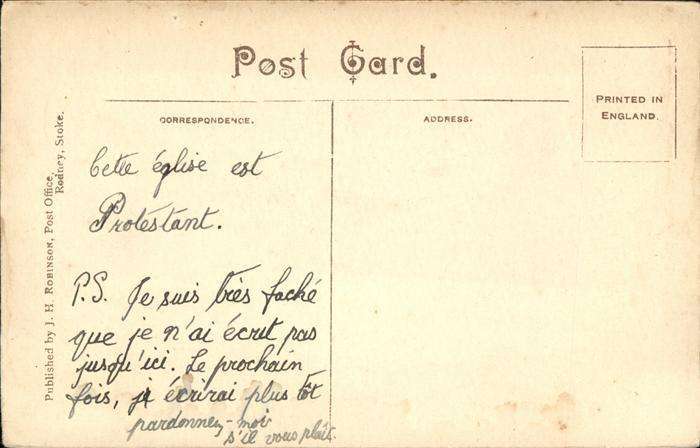 Post Card.
CORRESPONDENCE.
ADDRESS.
PRINTED IN
ENGLAND.
Published by J. H. ROBINSON, Post Office,
Rodney, Stoke.
Cette église est
Protestant.
P.S. Je suis très faché
que je n'ai écrit pas
jusqu'ici. Le prochain
fois, je écrirai plus tôt
pardonnez-moi
s'il vous plait.